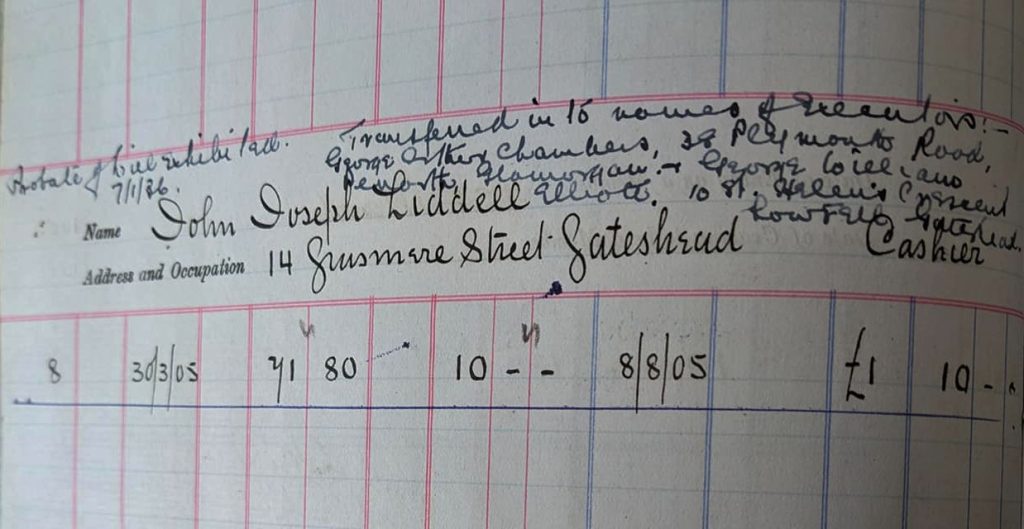 Probate of Will exhibited.
7/1/36.
Transferred in to names of Executors:-
George Arthur Chambers, 38 Plymouth Road,
Penarth, Glamorgan. & George William
Elliott. 10 St. Helen's Crescent
Low Fell Gateshead.
Name John Joseph Liddell
Address and Occupation 14 Grasmere Street Gateshead Cashier
8 30/3/05 71 80 10 - - 8/8/05 £1 10 - -